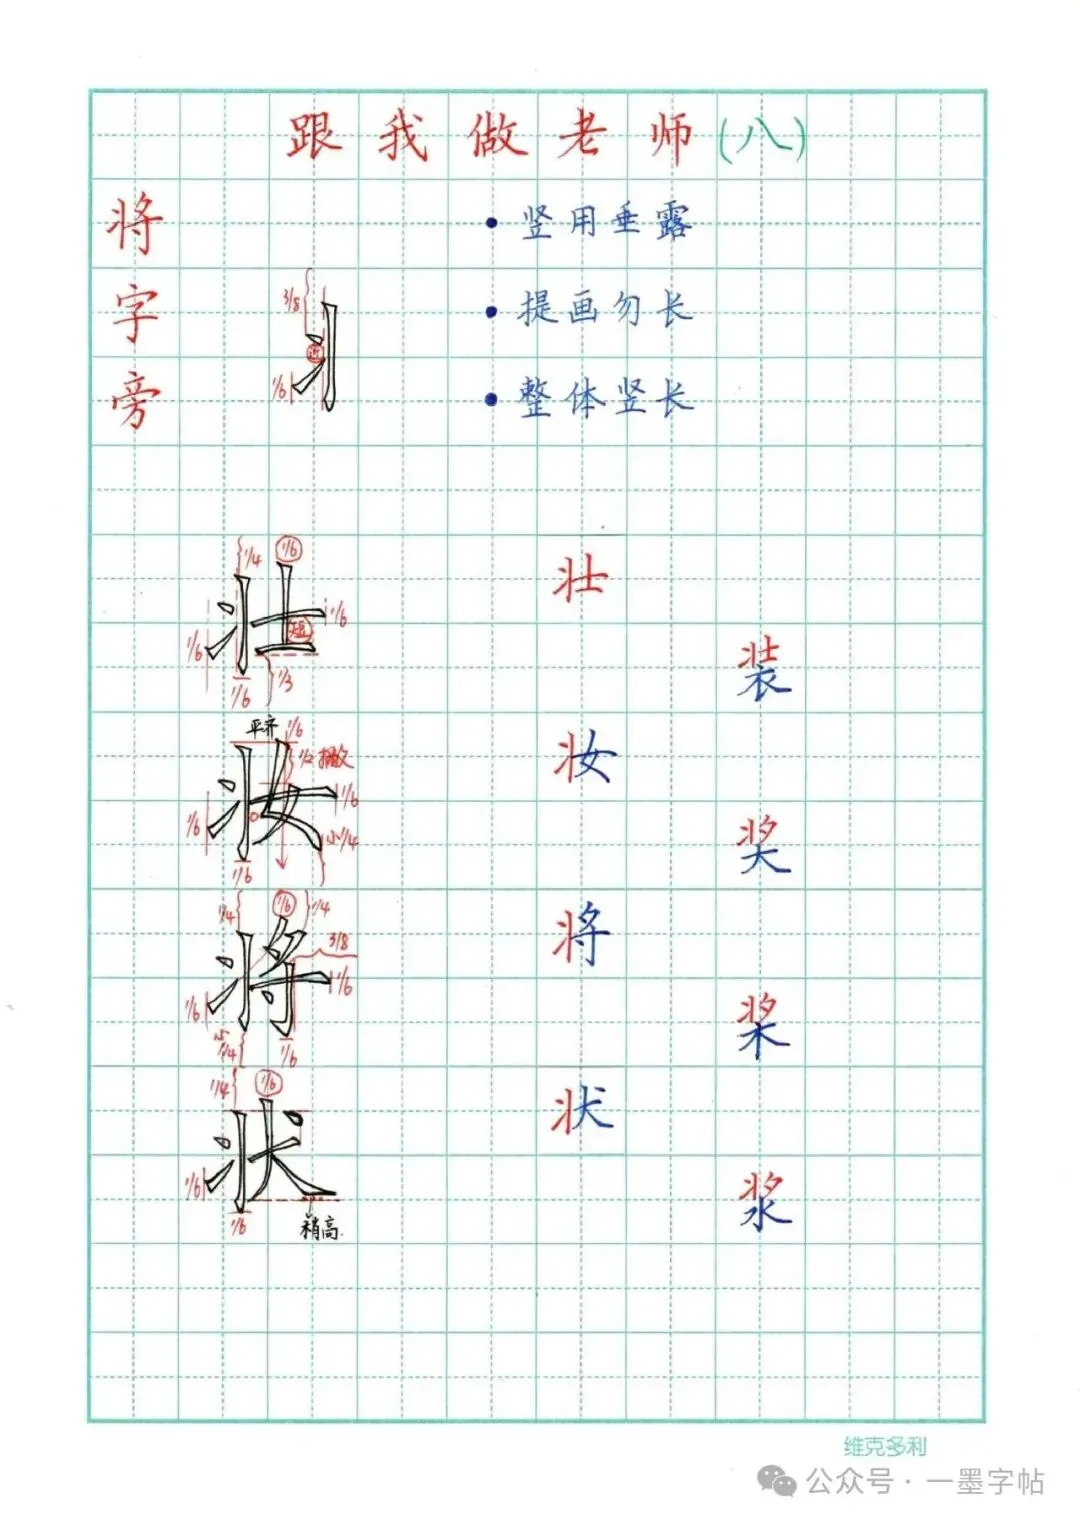 跟我做老师(八)
将字旁
•竖用垂露
•提画勿长
•整体竖长
3/8
近
1/6
1/4
1/6
1/6
短
1/6
1/6
1/3
壮
装
平齐
1/6
1/2
撇
1/6
1/6
小1/4
1/6
妆
奖
1/4
1/6
1/4
3/8
1/6
1/6
1/4
1/6
将
桨
1/4
1/6
1/6
1/6
稍高
状
浆
维克多利
公众号·一墨字帖